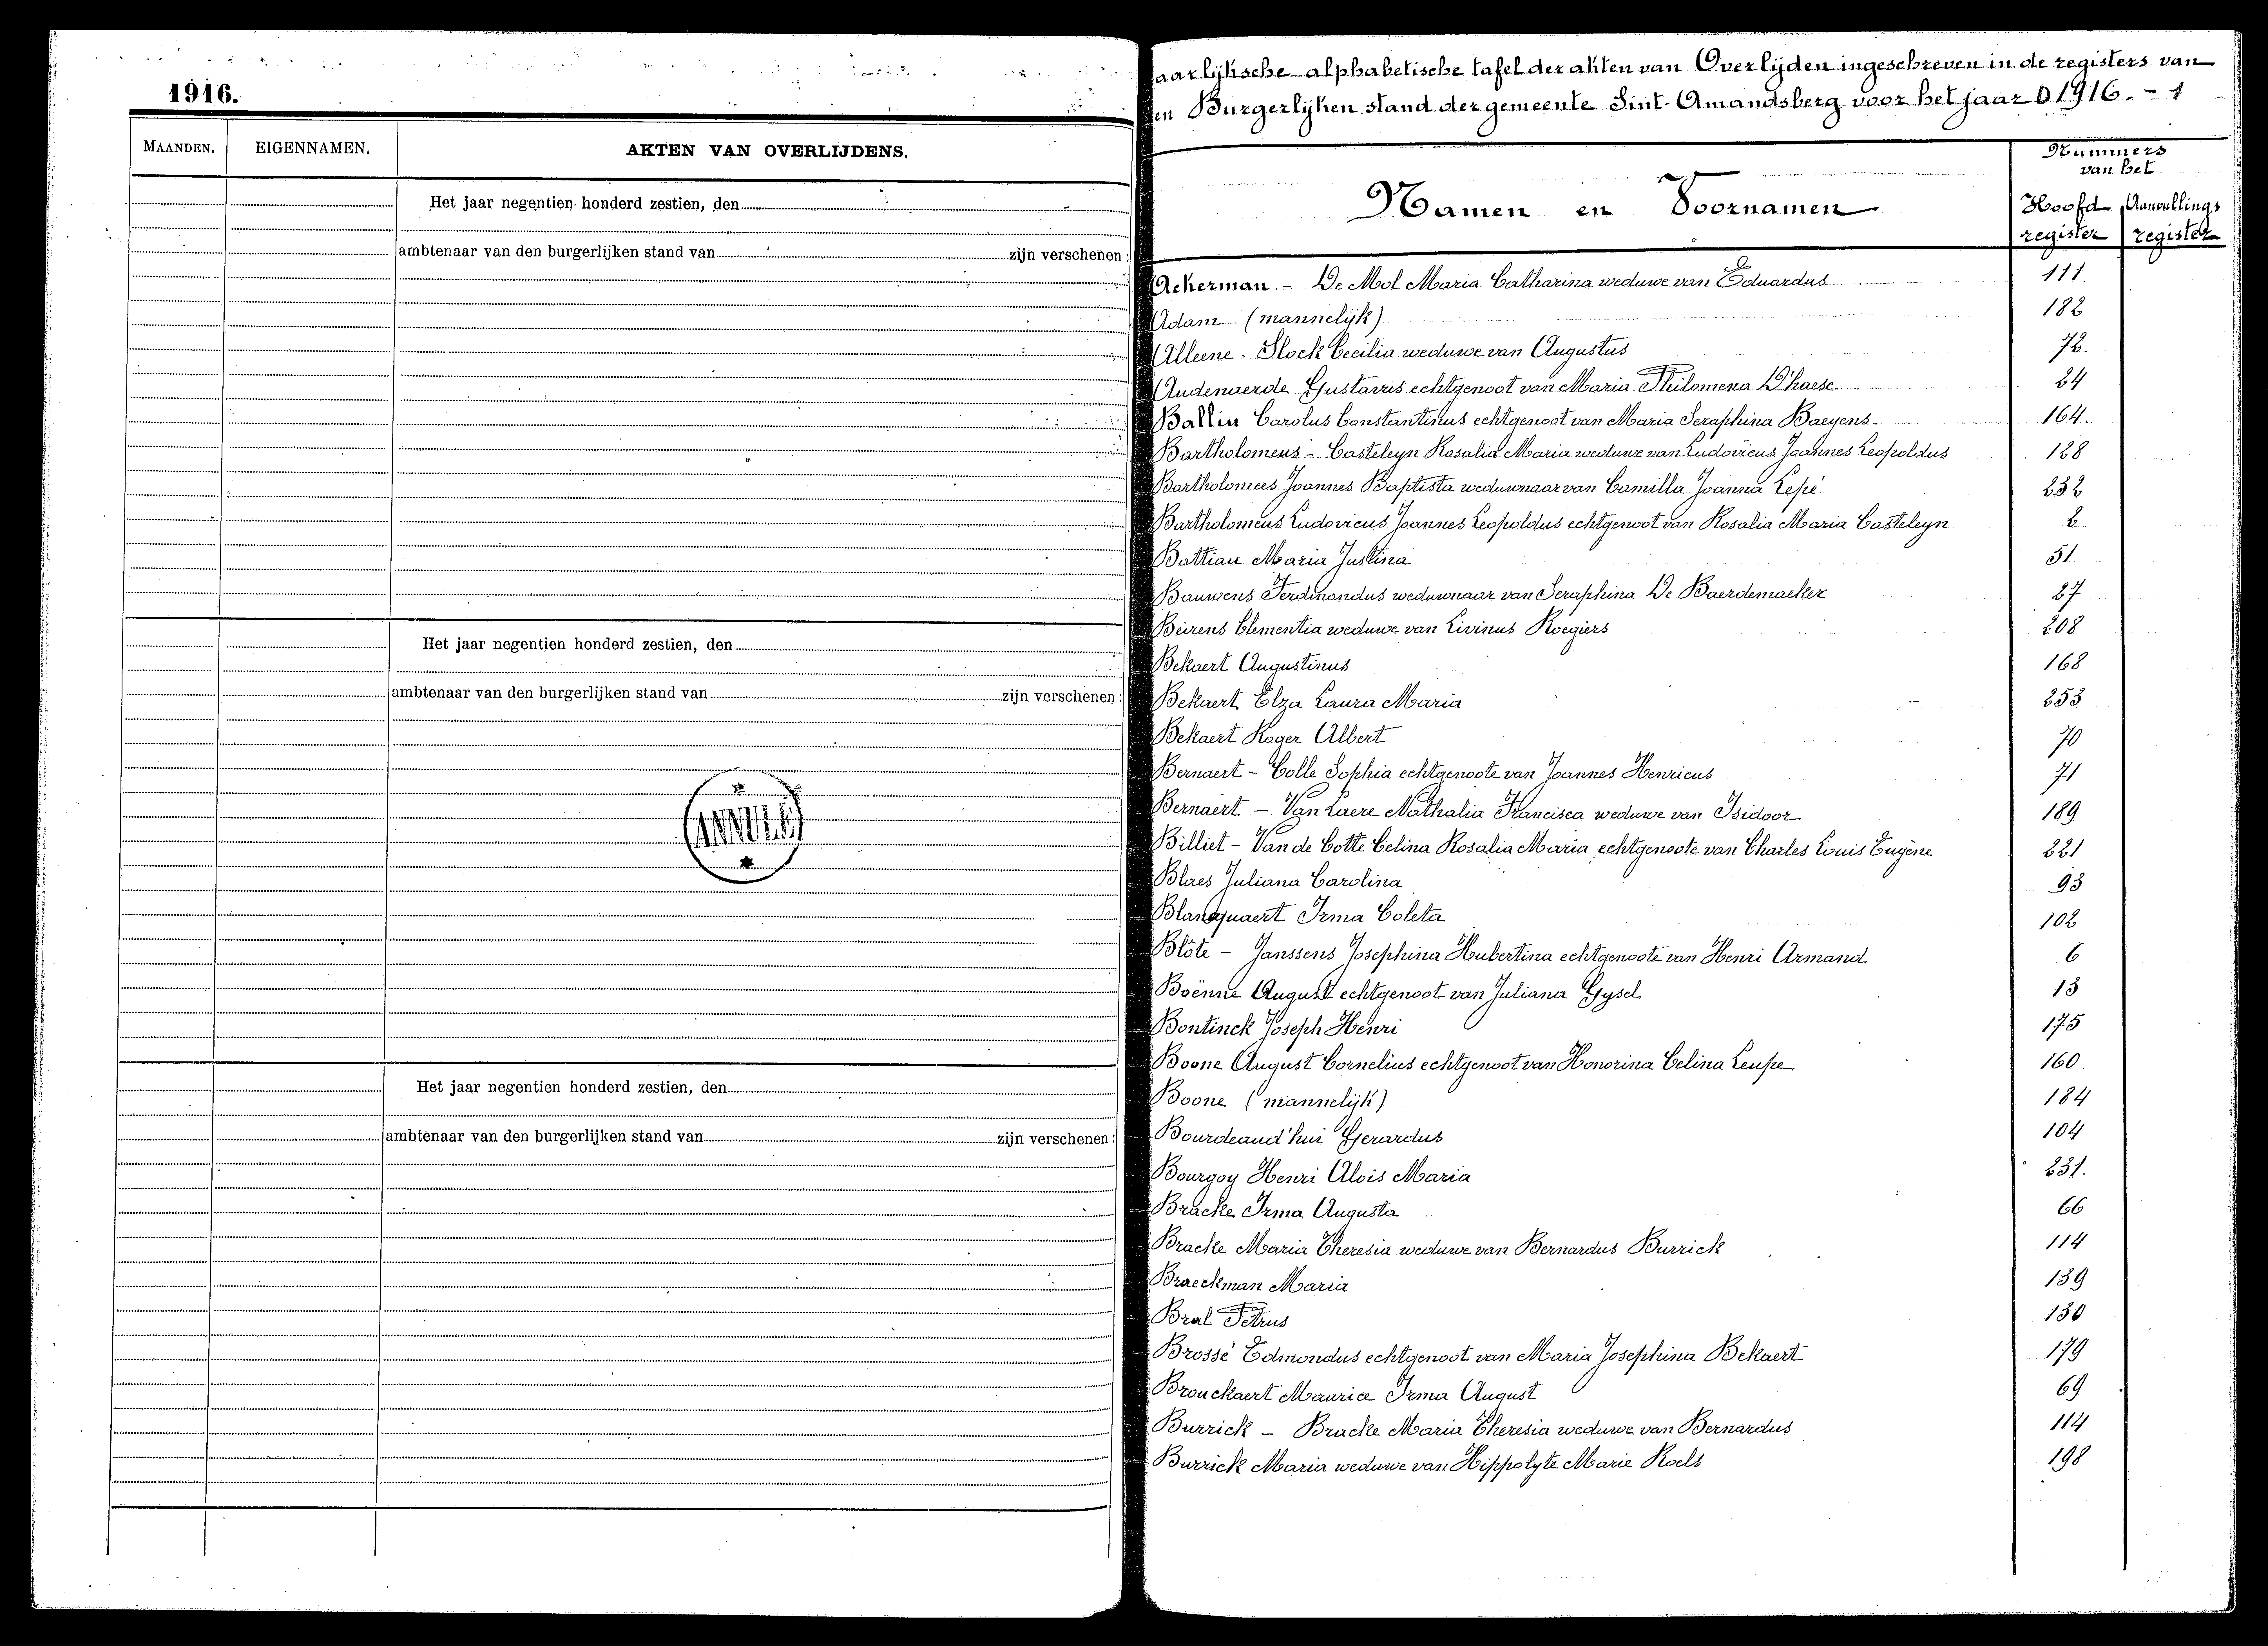 1916.
MAANDEN. EIGENNAMEN. AKTEN VAN OVERLIJDENS.
Het jaar negentien honderd zestien, den
ambtenaar van den burgerlijken stand van zijn verschenen:
Het jaar negentien honderd zestien, den
ambtenaar van den burgerlijken stand van zijn verschenen:
Het jaar negentien honderd zestien, den
ambtenaar van den burgerlijken stand van zijn verschenen:
aarlijksche alphabetische tafel der akten van Overlijden ingeschreven in de registers van
en Burgerlijken stand der gemeente Sint-Amandsberg voor het jaar 1916. - 1
Nummers
van het
Namen en Voornamen Hoofd Aanvullings
register register
Ackerman - De Mol Maria Catharina weduwe van Eduardus 111.
Adam (mannelijk) 182
Alleene - Slock Cecilia weduwe van Augustus 72.
Audenaerde Gustavus echtgenoot van Maria Philomena D'haese 24
Ballin Carolus Constantinus echtgenoot van Maria Seraphina Baeyens 164.
Bartholomeus - Casteleyn Rosalia Maria weduwe van Ludovicus Joannes Leopoldus 128
Bartholomees Joannes Baptista weduwnaar van Camilla Joanna Lepé 232
Bartholomeus Ludovicus Joannes Leopoldus echtgenoot van Rosalia Maria Casteleyn 2
Battiau Maria Justina 51
Bauwens Ferdinandus weduwnaar van Seraphina De Baerdemaeker 27
Beirens Clementia weduwe van Livinus Roegiers 208
Bekaert Augustinus 168
Bekaert Elza Laura Maria 253
Bekaert Roger Albert 70
Bernaert - Colle Sophia echtgenoote van Joannes Henricus 71
Bernaert - Van Laere Nathalia Francisca weduwe van Isidoor 189
Billiet - Van de Cotte Celina Rosalia Maria echtgenoote van Charles Louis Eugène 221
Blaes Juliana Carolina 93
Blancquaert Irma Coleta 102
Blöte - Janssens Josephina Hubertina echtgenoote van Henri Armand 6
Boënne August echtgenoot van Juliana Gysel 13
Bontinck Joseph Henri 175
Boone August Cornelius echtgenoot van Honorina Celina Leupe 160
Boone (mannelijk) 184
Bourdeaud'hui Gerardus 104
Bourgoy Henri Alois Maria 231.
Bracke Irma Augusta 66
Bracke Maria Theresia weduwe van Bernardus Burrick 114
Braeckman Maria 139
Bral Petrus 130
Brossé Edmondus echtgenoot van Maria Josephina Bekaert 179
Brouckaert Maurice Irma August 69
Burrick - Bracke Maria Theresia weduwe van Bernardus 114
Burrick Maria weduwe van Hippolyte Marie Roels 198